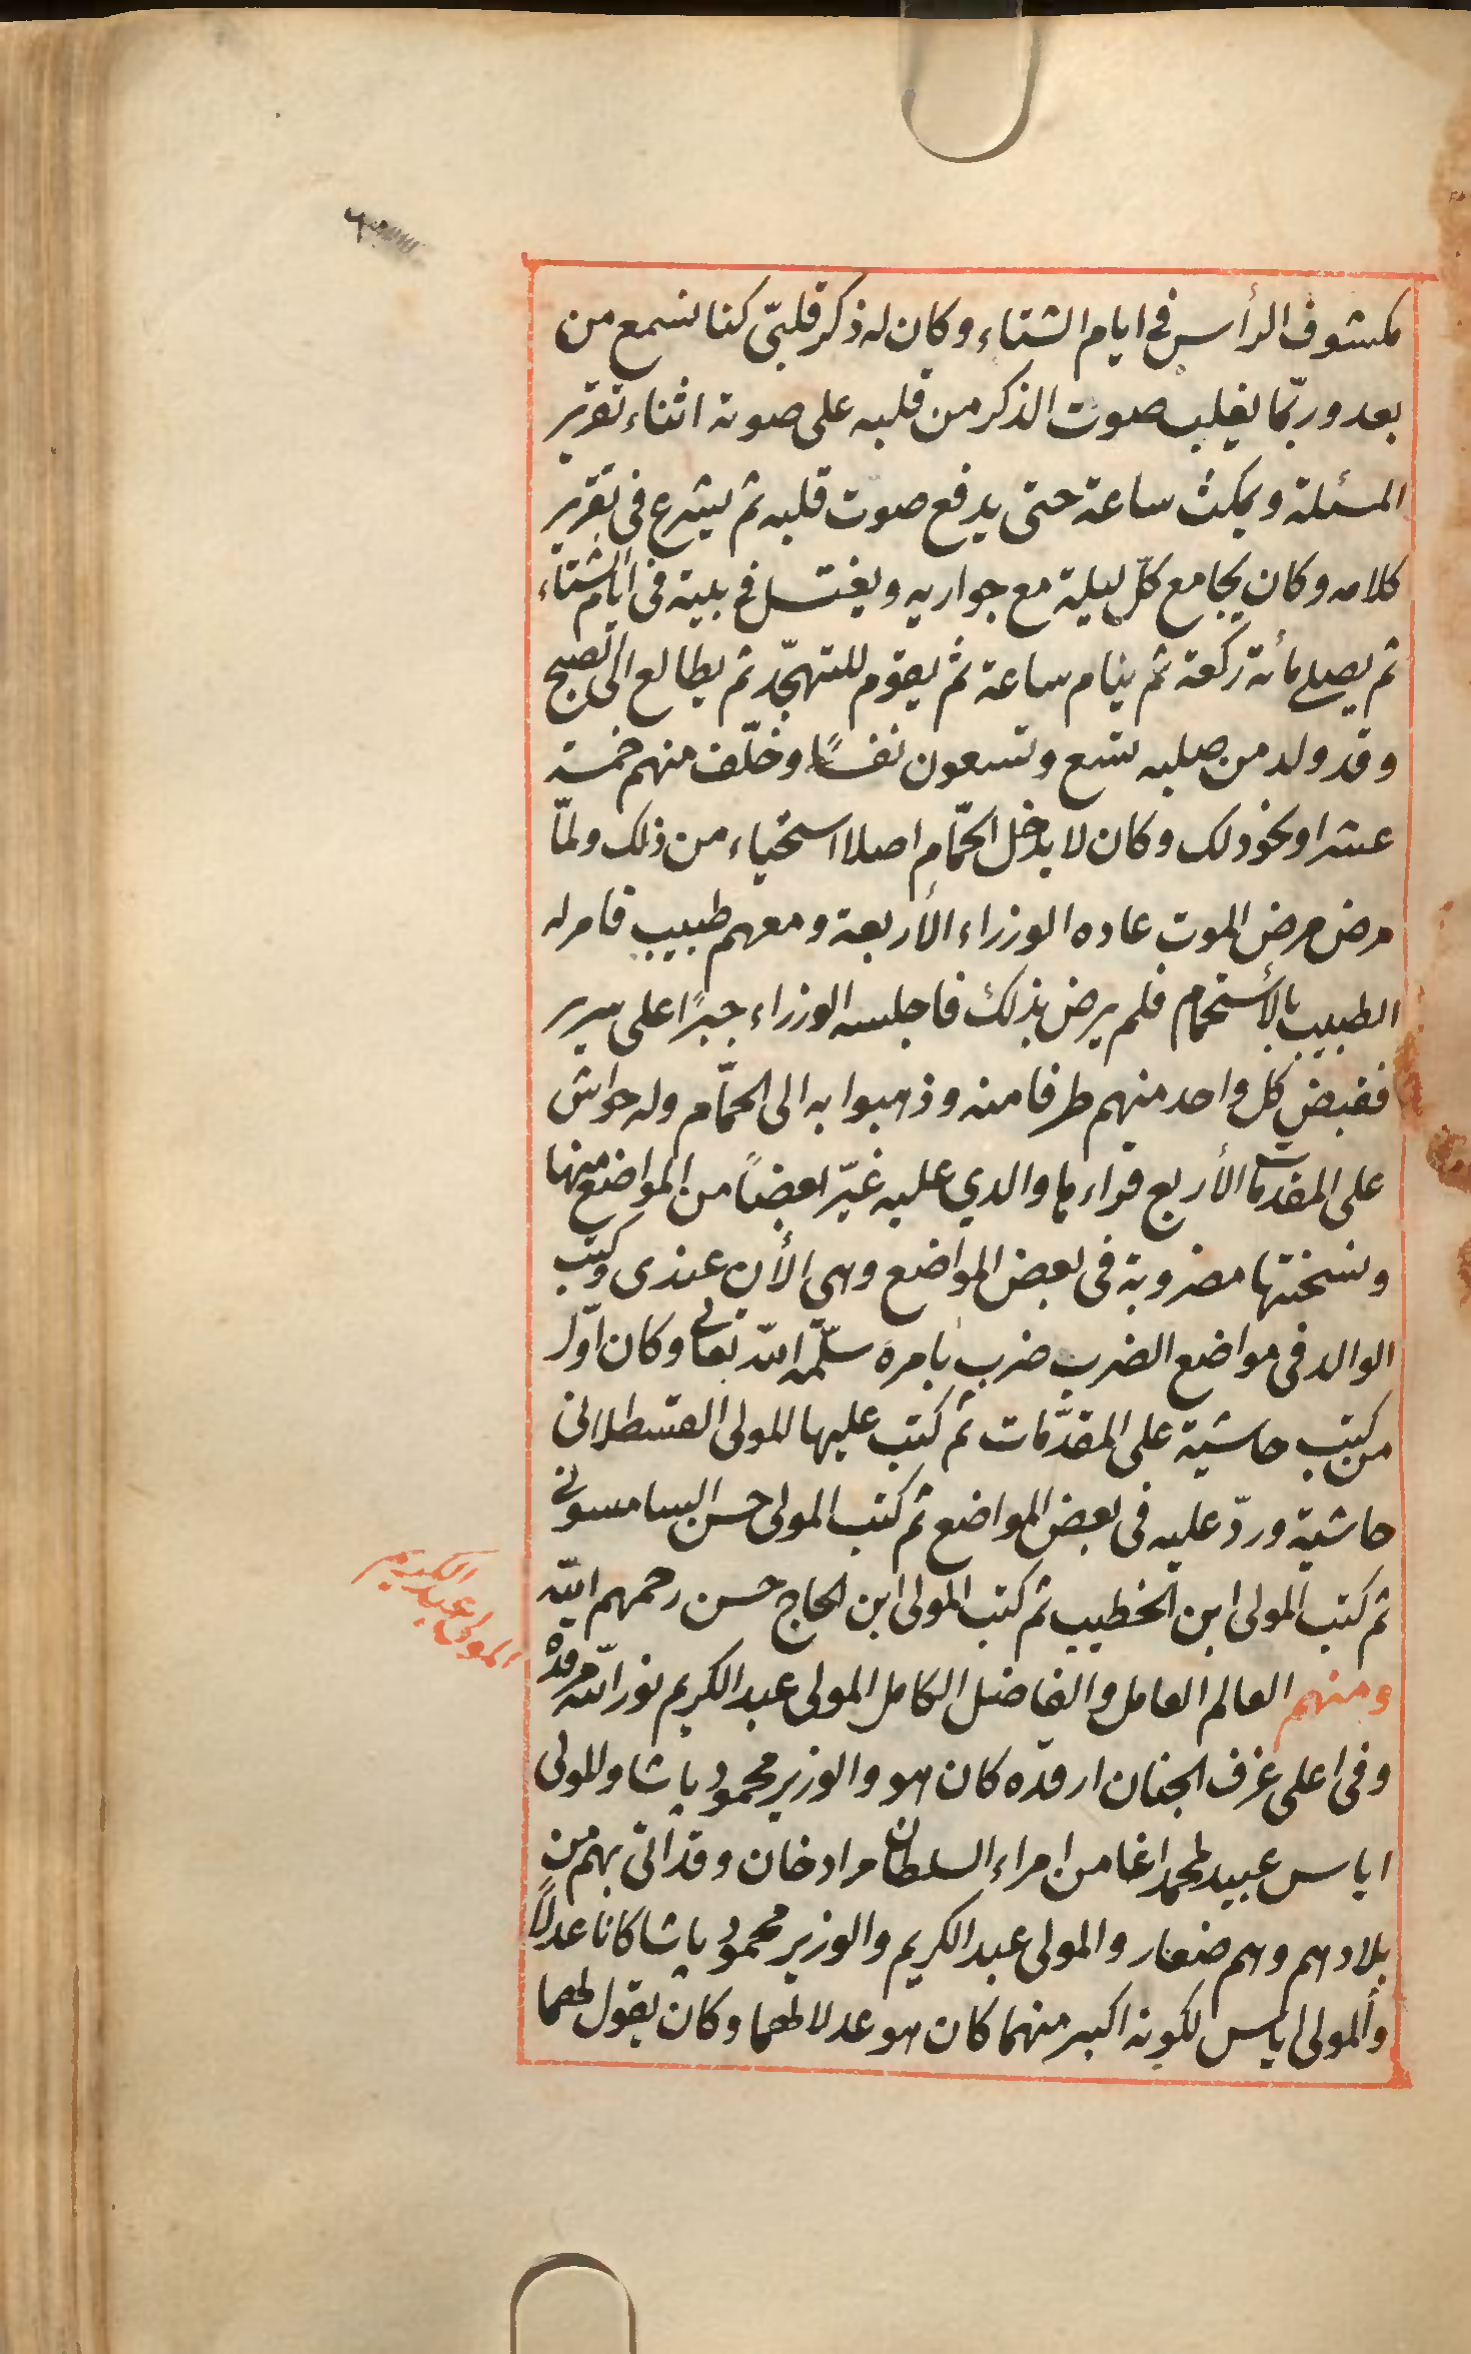 مكشوف الرأس فى ايام الشتاء وكان له ذكر قلبىّ كنا نسمع من
بعد وربّما يغلب صوت الذكر من قلبه على صوته اثناء تقرير
المسئلة ويمكث ساعة حتى يدفع صوت قلبه ثم يشرع فى تقرير
كلامه وكان يجامع كلّ ليلة مع جواريه ويغتسل فى بيته فى ايام الشتاء
ثم يصلى مأئة ركعة ثم ينام ساعة ثم يقوم للتهجّد ثم يطالع الى الصبح
وقد ولد من صلبه تسع وتسعون نفسًا وخلّف منهم خمسة
عشر او نحو ذلك وكان لا يدخل الحمّام اصلا استحياء من ذلك ولمّا
مرض مرض الموت عاده الوزراء الأربعة ومعهم طبيب فامر له
الطبيب بالأستحمام فلم يرض بذلك فاجلسه الوزراء جبرًا على سرير
فقبض كل واحد منهم طرفا منه وذهبوا به الى الحمّام وله حواش
على المقدمات الأربع قراءها والدي عليه غيّر بعضًا من المواضع منها
ونسختها مضروبة فى بعض المواضع وهى الأن عندى وكتب
الوالد فى مواضع الضرب ضرب بامره سلّمه الله تعالى وكان اوّل
من كتب حاشية على المقدّمات ثم كتب عليها للولى القسطلانى
حاشية وردّ عليه فى بعض المواضع ثم كتب المولى حسن السامسونى
ثم كتب المولى ابن الخطيب ثم كتب المولى ابن الحاج حسن رحمهم الله
ومنهم العالم العامل والفاضل الكامل المولى عبد الكريم نور الله مرقده
المولى عبد الكريم
وفى اعلى غرف الجنان ارقده كان هو والوزير محمود باشا وللولى
اياس عبيد لمحمد اغا من امراء السلطان مراد خان وقد اتى بهم من
بلادهم وهم صغار والمولى عبد الكريم والوزير محمود باشا كانا عدلاً
وألمولى اياس لكونه اكبر منهما كان هو عدلا لهما وكان يقول لهما